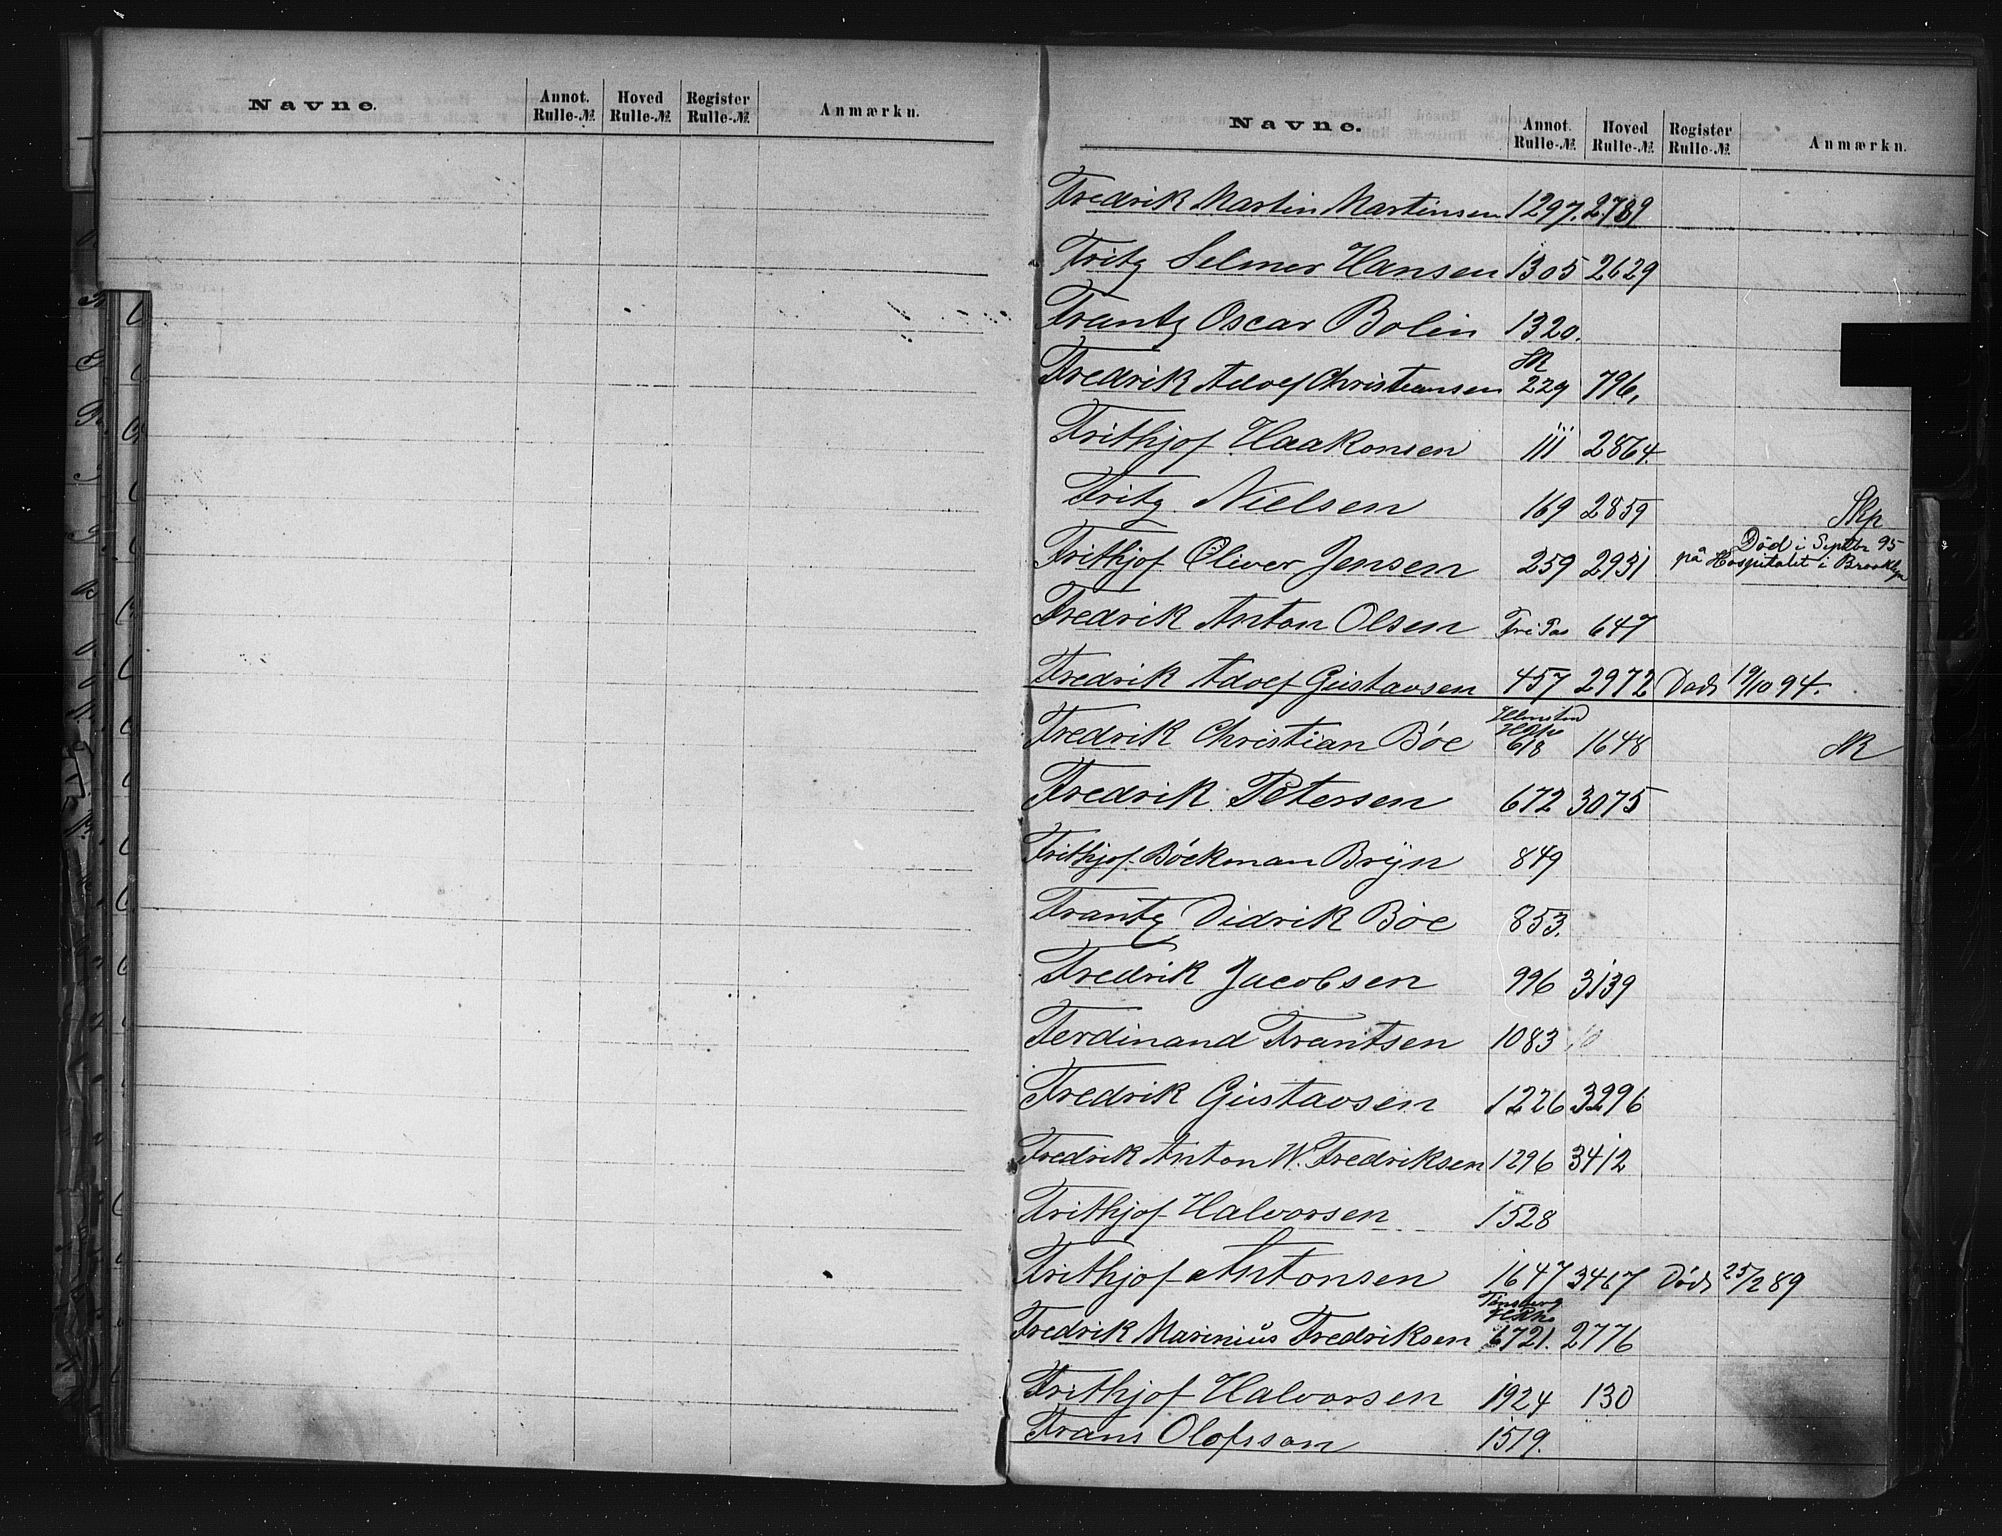 Navne. Annot. Rulle-№ Hoved Rulle-№ Register Rulle-№ Anmærkn.
Navne. Annot. Rulle-№ Hoved Rulle-№ Register Rulle-№ Anmærkn.
Fredrik Martin Martinsen 1297. 2789
Fritz Selmer Hansen 1305 2629
Frantz Oscar Bolin 1320.
Fredrik Adolf Christiansen 229 796,
Frithjof Haakonsen 111 2864.
Fritz Nielsen 169 2859 Skp
Frithjof Oliver Jensen 259 2931 Død i Septbr 95
på Hospitalet i Brooklyn
Fredrik Anton Olsen Fri Pas 647
Fredrik Adolf Gustavsen 457 2972 Død 19/10 94.
Fredrik Christian Bøe 618 1648
Fredrik Petersen 672 3075
Frithjof Böckman Bryn 849
Frantz Didrik Böe 853.
Fredrik Jacobsen 996 3139
Ferdinand Frantsen 1083
Fredrik Gustavsen 1226 3296
Fredrik Anton W. Fredriksen 1296 3412
Frithjof Halvorsen 1528
Frithjof Antonsen 1647 3467 Død 25/2 89
Tønsberg
Fredrik Marinius Fredriksen 6721. 2776
Frithjof Halvorsen 1924 130
Frans Olofsson 1519.